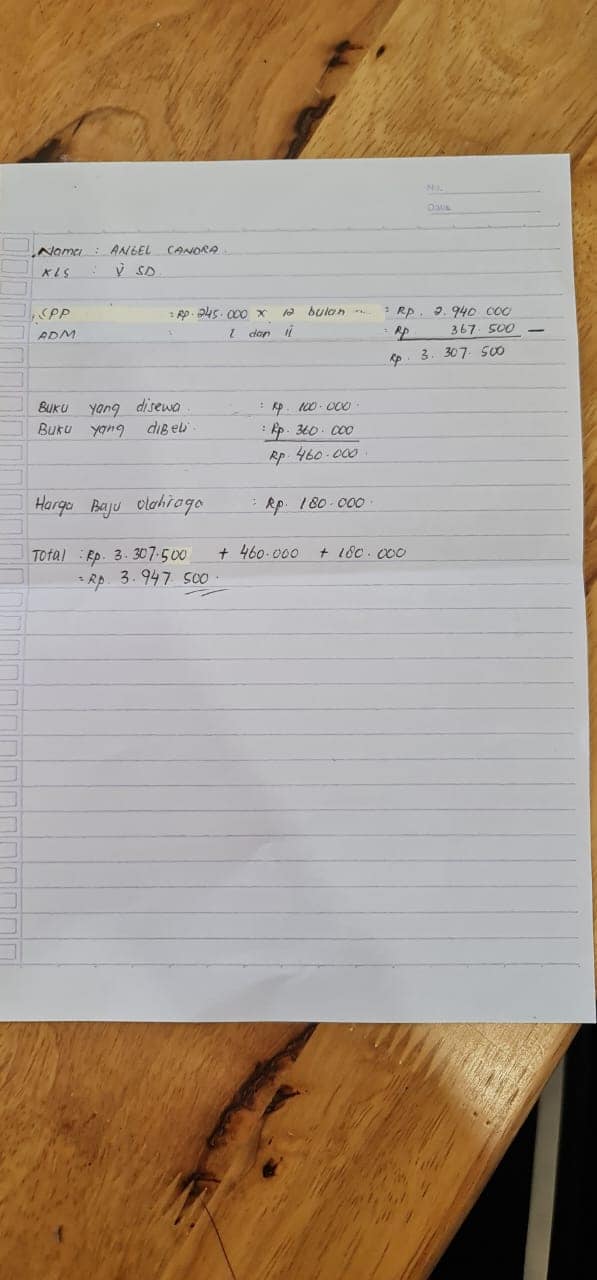 No.
Date
Nama : ANGEL CANDRA.
KLS : V SD
SPP : Rp. 245.000 x 12 bulan : Rp. 2.940.000
ADM : I dan II : Rp 367.500 —
Rp. 3.307.500
Buku yang disewa. : Rp. 100.000.
Buku yang diBeli. : Rp. 360.000
Rp. 460.000.
Harga Baju olahraga : Rp. 180.000.
Total : Rp. 3.307.500 + 460.000 + 180.000
= Rp. 3.947.500.